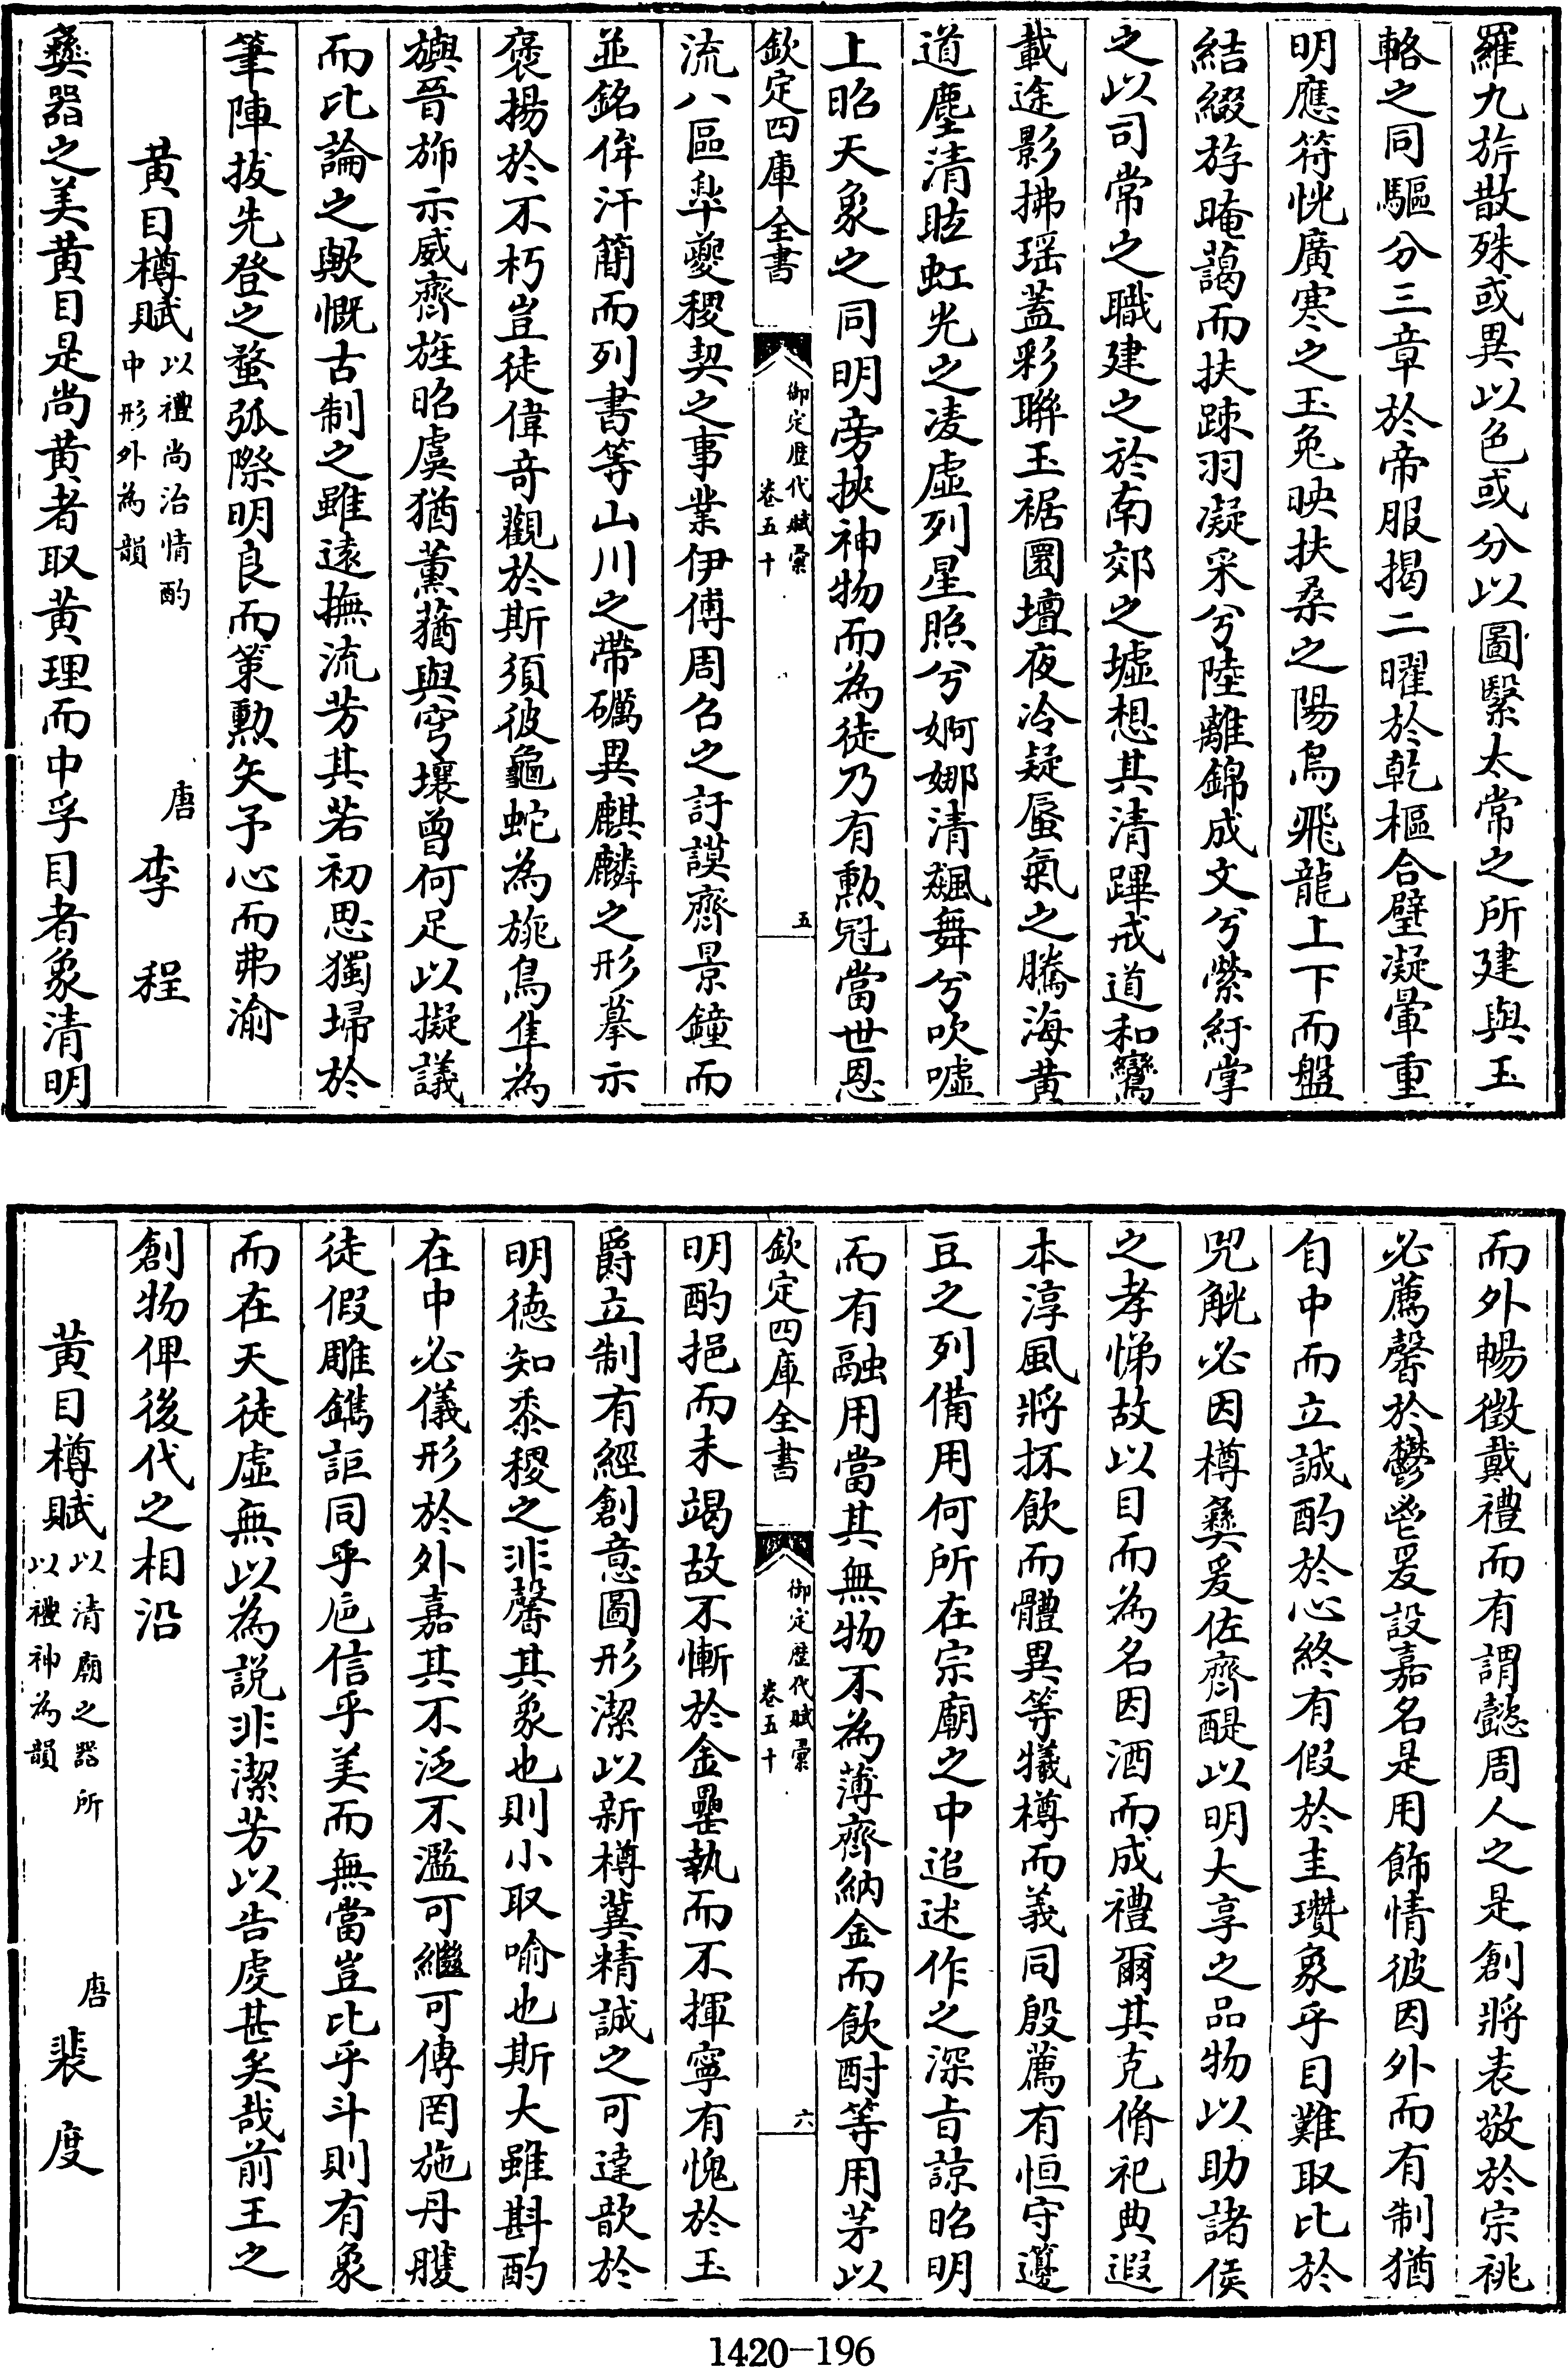 羅九旂散殊或異以色或分以圖繄太常之所建與玉
輅之同驅分三章於帝服揭二曜於乾樞合璧凝暈重
明應符恍廣寒之玉兔映扶桑之陽烏飛龍上下而盤
結綴斿晻藹而扶踈羽凝采兮陸離錦成文兮縈紆掌
之以司常之職建之於南郊之墟想其清蹕戒道和鸞
載途影拂瑶蓋彩聯玉裾圜壇夜冷疑蜃氣之騰海黄
道塵清眩虹光之凌虛列星照兮婀娜清飊舞兮吹噓
上昭天象之同明旁挾神物而為徒乃有勲冠當世恩
欽定四庫全書
御定歴代賦彙
卷五十
五
流八區臯夔稷契之事業伊傅周召之訏謨齊景鐘而
並銘侔汗簡而列書等山川之帶礪異麒麟之形摹示
褒揚於不朽豈徒偉奇觀於斯須彼龜蛇為旐鳥隼為
旟晉斾示威齊旌昭虞猶薰蕕與穹壤曾何足以擬議
而比論之歟慨古制之雖遠撫流芳其若初思獨埽於
筆陣拔先登之蝥弧際明良而策勲矢予心而弗渝
黄目樽賦
以禮尚治情酌
中形外為韻
唐
李程
彜器之美黄目是尚黄者取黄理而中孚目者象清明
而外暢徴戴禮而有謂懿周人之是創將表敬於宗祧
必薦馨於鬱鬯爰設嘉名是用飾情彼因外而有制猶
自中而立誠酌於心終有假於圭瓚象乎目難取比於
兕觥必因樽彜爰佐齊醍以明大享之品物以助諸侯
之孝悌故以目而為名因酒而成禮爾其克脩祀典遐
本淳風將抔飲而體異等犧樽而義同殷薦有恒守籩
豆之列備用何所在宗廟之中追述作之深㫖諒昭明
而有融用當其無物不為薄齊納金而飲酎等用茅以
欽定四庫全書
御定歴代賦彙
卷五十
六
明酌挹而未竭故不慚於金罍執而不揮寧有愧於玉
爵立制有經創意圖形潔以新樽冀精誠之可達歆於
明徳知黍稷之非馨其象也則小取喻也斯大雖斟酌
在中必儀形於外嘉其不泛不濫可繼可傳罔施丹雘
徒假雕鐫詎同乎巵信乎美而無當豈比乎斗則有象
而在天徒虛無以為説非潔芳以告虔甚矣哉前王之
創物俾後代之相沿
黄目樽賦
以清廟之器所
以禮神為韻
唐
裴度
1420-196